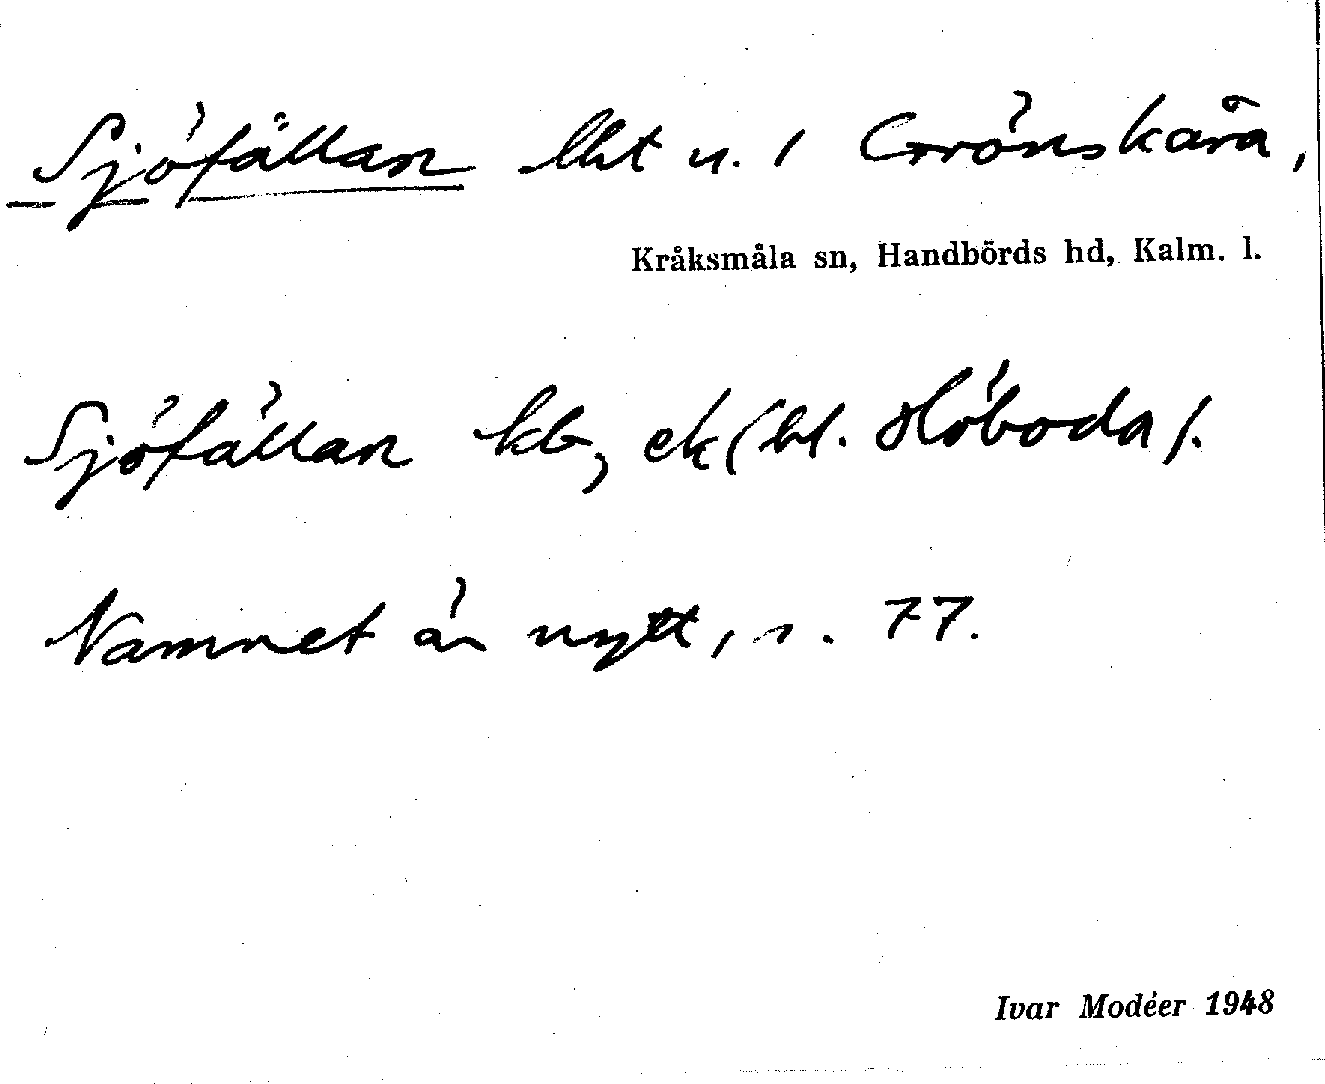 Sjöfällan lht u. 1 Grönskåra,
Kråksmåla sn, Handbörds hd, Kalm. l.
Sjöfällan kb, ek (bl. Höboda).
Namnet är nytt, s. 77.
Ivar Modéer 1948